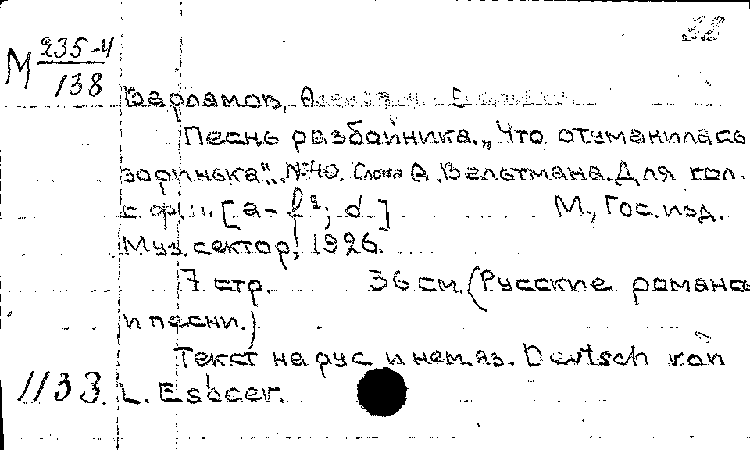 38
М 235-4
138
Варламов, Александр
Песнь разбойника. „Что отуманилась
заринька“. № 40. Слова А. Вельтмана. Для гол.
с ф-п. [a - f²; d] М., Гос. изд.
Муз. сектор, 1926.
7 стр. 36 см. (Русские романсы
и песни.)
Текст на рус. и нем. яз. Deutsch von
1133. L. Esbeer.